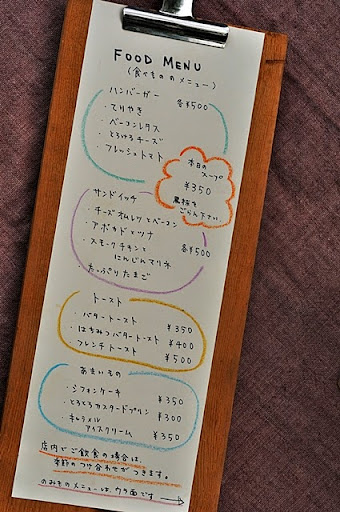 FOOD MENU
(食べもののメニュー)
ハンバーガー 各¥500
・てりやき
・ベーコンレタス
・とろけるチーズ
・フレッシュトマト
本日の
スープ
¥350
黒板を
ごらん下さい。
サンドイッチ
・チーズオムレツとベーコン
・アボカドとツナ
・スモークチキンと 各¥500
にんじんマリネ
・たっぷりたまご
トースト
・バタートースト ¥350
・はちみつバタートースト ¥400
・フレンチトースト ¥500
あまいもの
・シフォンケーキ ¥350
・とろとろカスタードプリン ¥300
・キャラメル
アイスクリーム ¥350
店内でご飲食の場合は、
季節のつけ合わせがつきます。
のみものメニューは、ウラ面です→